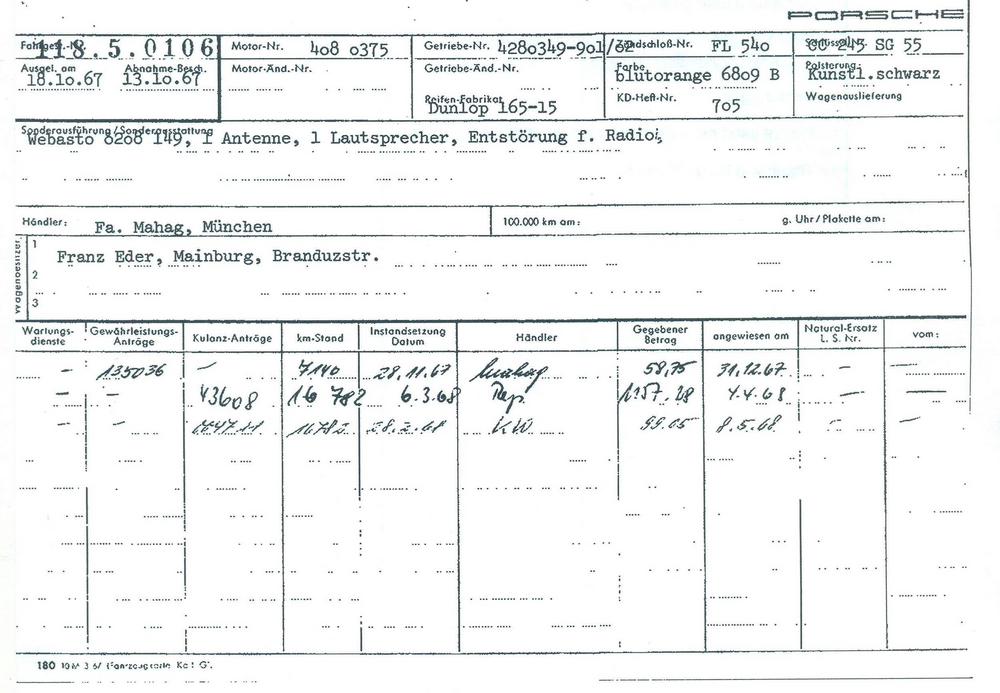 PORSCHE
Fahrgest.-Nr. 118.5.0106 Motor-Nr. 408 0375 Getriebe-Nr. 4280349-901/02 Zündschloß-Nr. FL 540 SG 55
Ausgel. am 18.10.67 Abnahme-Besch. 13.10.67 Motor-Änd.-Nr. Getriebe-Änd.-Nr. Farbe blutorange 6809 B Polsterung Kunstl.schwarz
Reifen-Fabrikat Dunlop 165-15 KD-Heft-Nr. 705 Wagenauslieferung
Sonderausführung/Sonderausstattung
Webasto 8200 149, 1 Antenne, 1 Lautsprecher, Entstörung f. Radio
Händler: Fa. Mahag, München 100.000 km am: g. Uhr/Plakette am:
Wagenbesitzer
1 Franz Eder, Mainburg, Branduzstr.
2
3
Wartungs-dienste Gewährleistungs-Anträge Kulanz-Anträge km-Stand Instandsetzung Datum Händler Gegebener Betrag angewiesen am Natural-Ersatz L. S. Nr. vom:
– 135036 – 7140 28.11.67 Mahag 58,75 31.12.67 –
– – 43608 16 782 6.3.68 Rep. 1157.28 4.4.68 – –
– – 1678 28.2.68 K.W. 99.05 8.5.68 – –
180